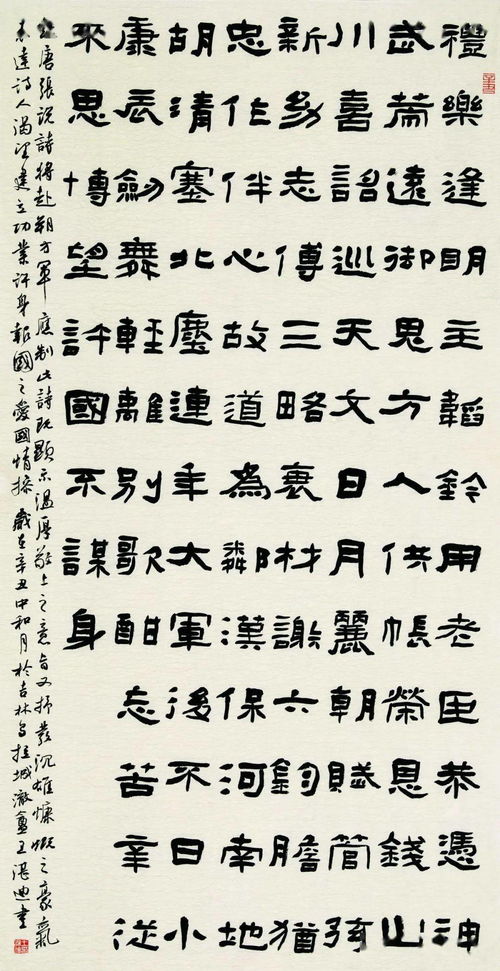 禮樂逢明主韜鈐用老臣恭憑神
武策遠御鬼方人供帳榮恩餞山
川喜詔巡天文日月麗朝賦管弦
新幼志傳三略衰材謝六鈞膽猶
忠作伴心故道為鄰漢保河南地
胡清塞北塵連年大軍後不日小
康辰劍舞輕離別歌酣忘苦辛從
來思博望許國不謀身
唐張說詩將赴朔方軍應制此詩既顯示溫厚敬上之意旨又抒發沉雄慷慨之豪氣
表達詩人渴望建立功業許身報國之愛國情操歲在辛丑中和月於吉林烏拉城澂盦王湛迪書